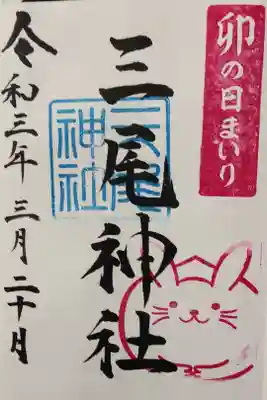 卯の日まいり
三尾神社
三尾神社
令和三年三月二十日